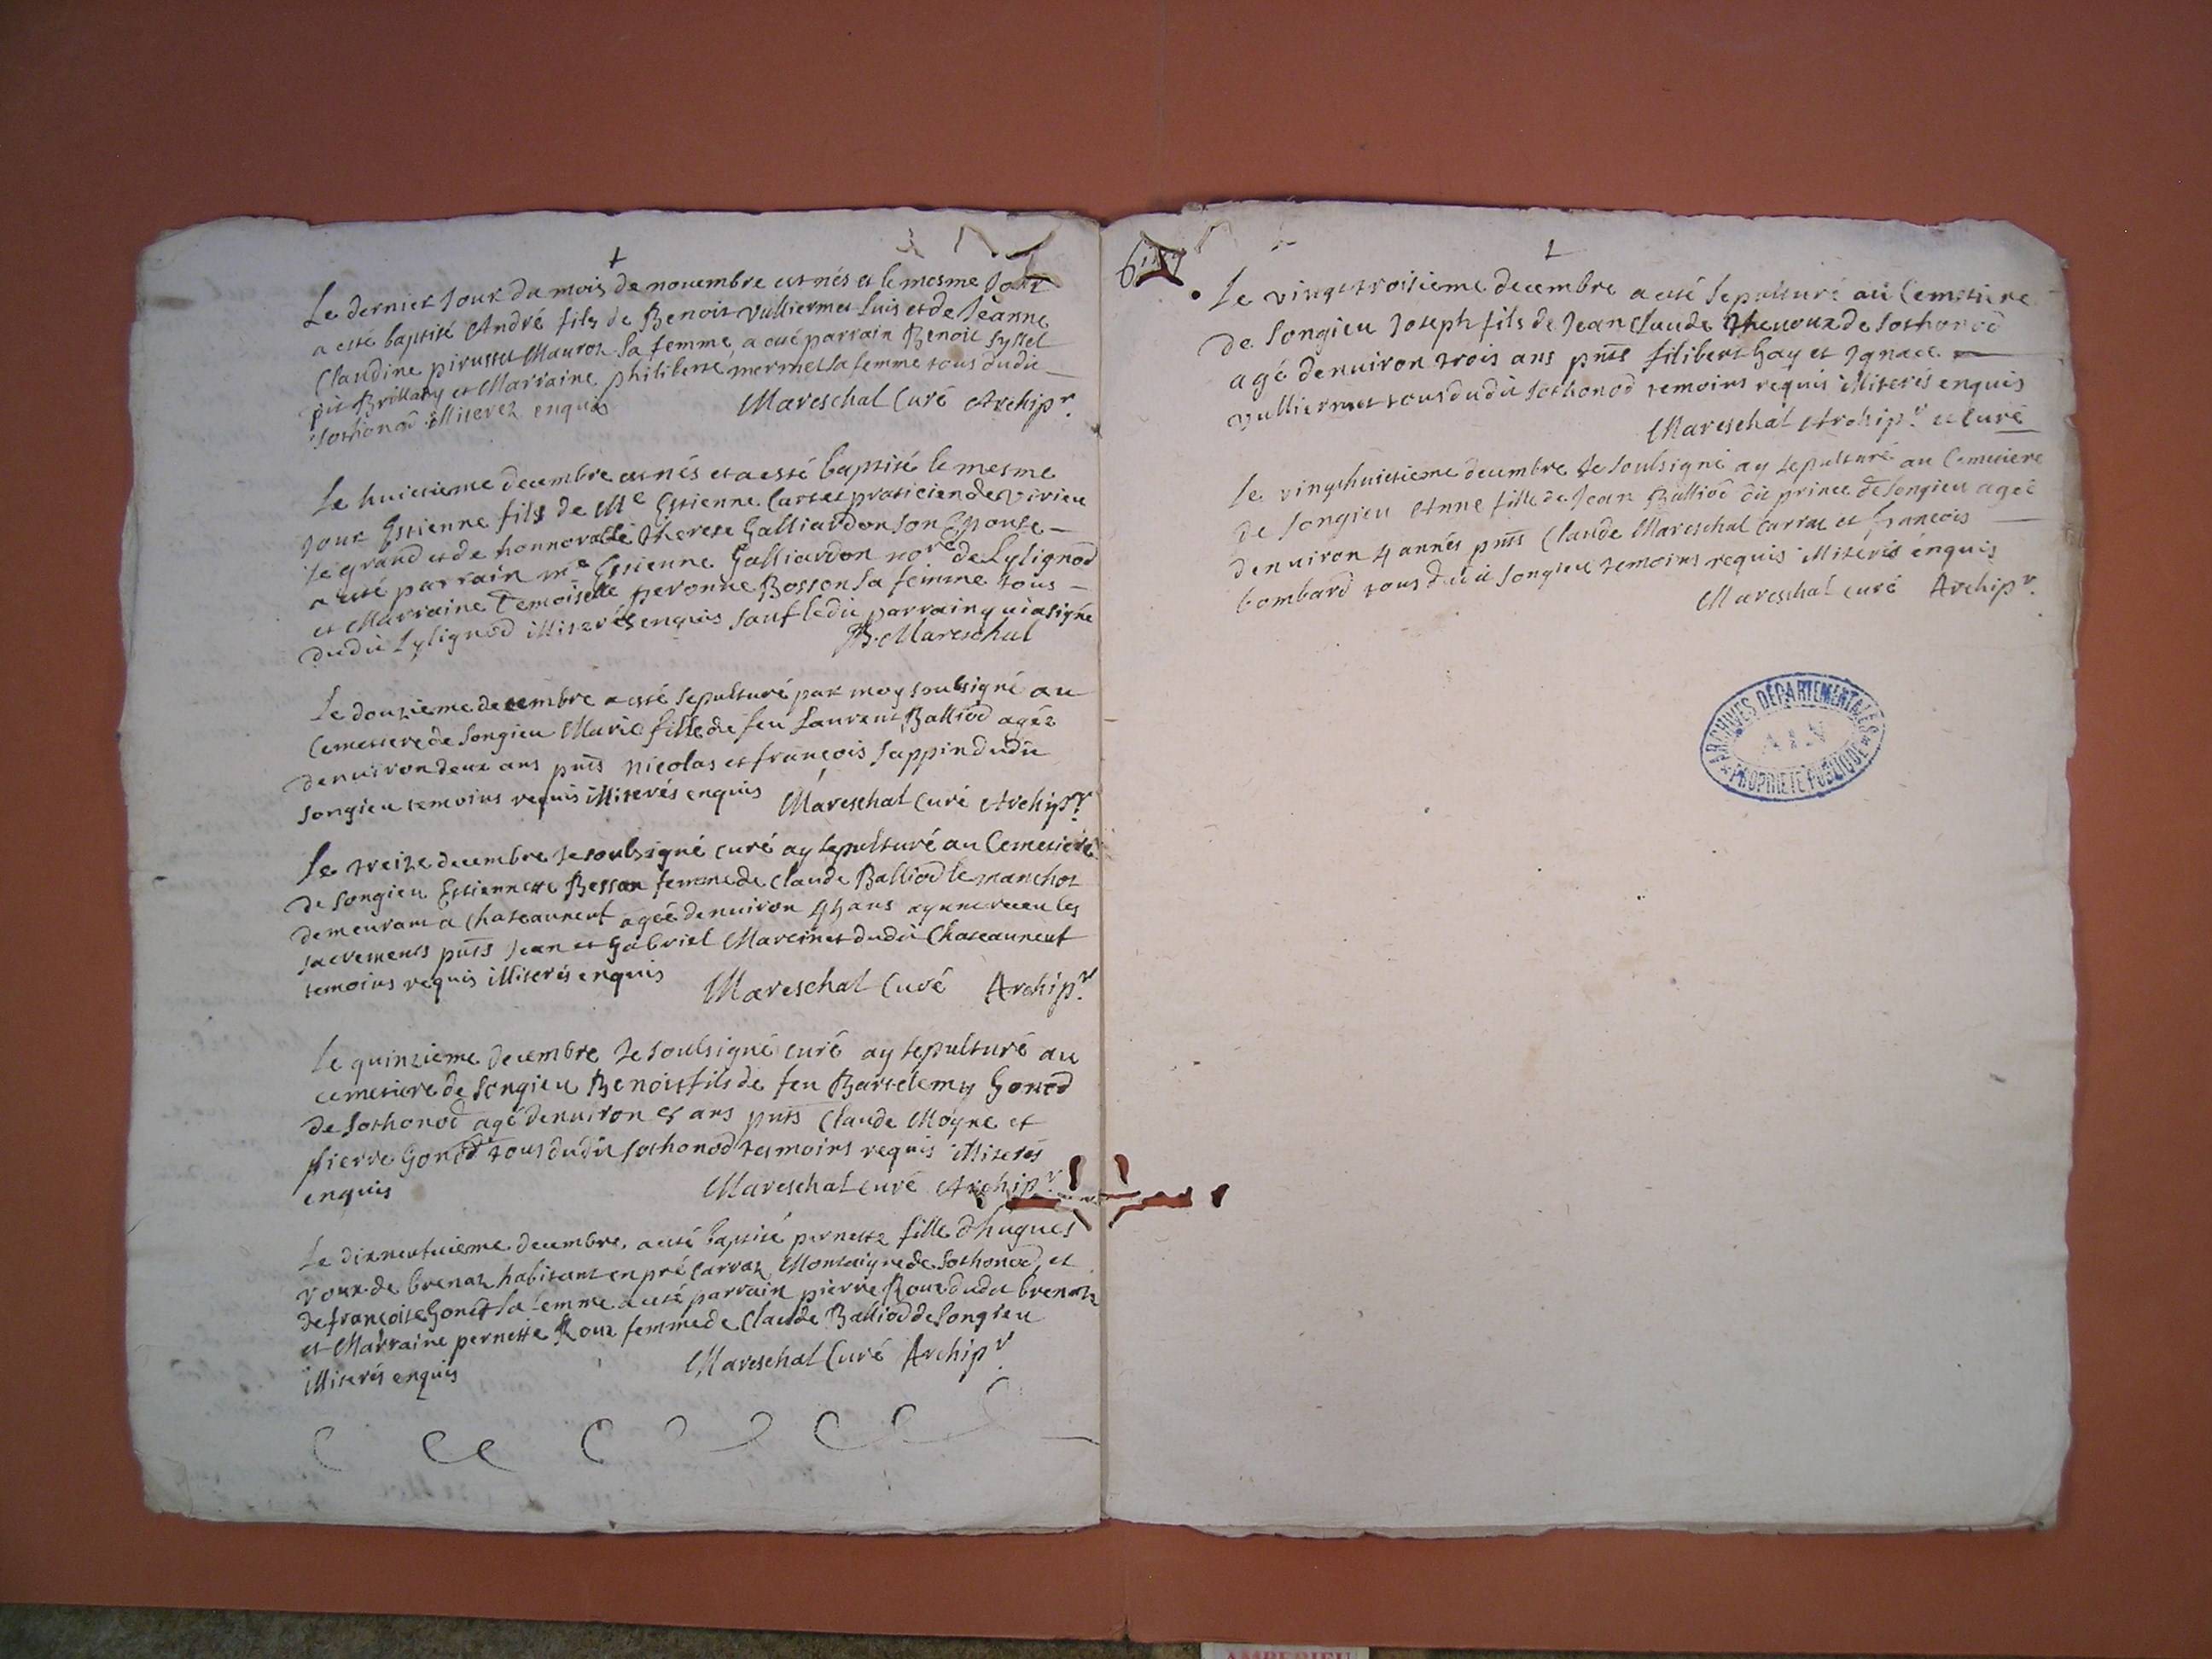 Le dernier Jour du mois de novembre est nés et le mesme Jour
a esté baptisé André fils de Benoit Vulliermet Luis et de Jeanne
Claudine pirussel Mauroz sa femme, a esté parrain Benoit Syssel
dit Brillany et Marraine philiberte mermet sa femme tous dudit
Sothonod illiterez enquis Mareschal Curé Archipr.
Le huictieme decembre est nés et a esté baptisé le mesme
Jour Estienne fils de Me Estienne Carrel praticien de Virieu
le grand et de honnorable Therese Galliardon son Epouse
a esté parrain me Estienne Galliardon nore de Lylignod
et Marraine Demoiselle peronne Bosson sa femme tous
dudit Lylignod illiterés enquis sauf ledit parrain qui a signé
B. Mareschal
Le douzieme decembre a esté sepulturé par moy soubsigné au
Cemettere de Songieu Marie fille de feu Laurent Balliod agée
denuiron deux ans pnts Nicolas et françois Sappin dudit
Songieu temoins requis illiterés enquis Mareschal Curé Archipr.
Le treize decembre Je soubsigné curé ay sepulturé au Cemetiere
de Songieu Estiennette Besson femme de Claude Balliod le manchot
demeurant a Chateauneuf agée denuiron 45 ans ayant receu les
sacrements pnts Jean et Gabriel Marcinet dudit Chateauneuf
temoins requis illiterés enquis Mareschal Curé Archipr.
Le quinzieme decembre Je soulsigné curé ay sepulturé au
cemetiere de Songieu Benoist fils de feu Bartelemy Gonod
de Sothonod agé denuiron ans pnts Claude Moyne et
pierre Gonod tous dudit Sothonod tesmoins requis illiterés
enquis Mareschal curé Archipr.
Le dixneufuieme decembre a esté baptisé pernette fille d'hugues
roux de brenaz habitant en pré Carraz Montaigne de Sothonod, et
de françoise Gonod sa femme a esté parrain pierre Roux dudit brenaz
et Marraine pernette Roux femme de Claude Balliod de Songieu
illiterés enquis Mareschal Curé Archipr.
Le vingt troisieme decembre a esté sepulturé au Cemetiere
de Songieu Joseph fils de Jean Claude Thenoux de Sothonod
agé denuiron trois ans pnts filibert Gay et Ignace
vulliermet tous dudit Sothonod temoins requis illiterés enquis
Mareschal Archipr. et Curé
Le vingthuictieme decembre Je soulsigné ay sepulturé au Cemetiere
de Songieu Anne fille de Jean Balliod dit prince de Songieu agée
denuiron 4 années pnts Claude Mareschal Carraz et françois
bombard tous dudit Songieu temoins requis illiterés enquis
Mareschal curé Archipr.
ARCHIVES DÉPARTEMENTALES
AIN
PROPRIÉTÉ PUBLIQUE